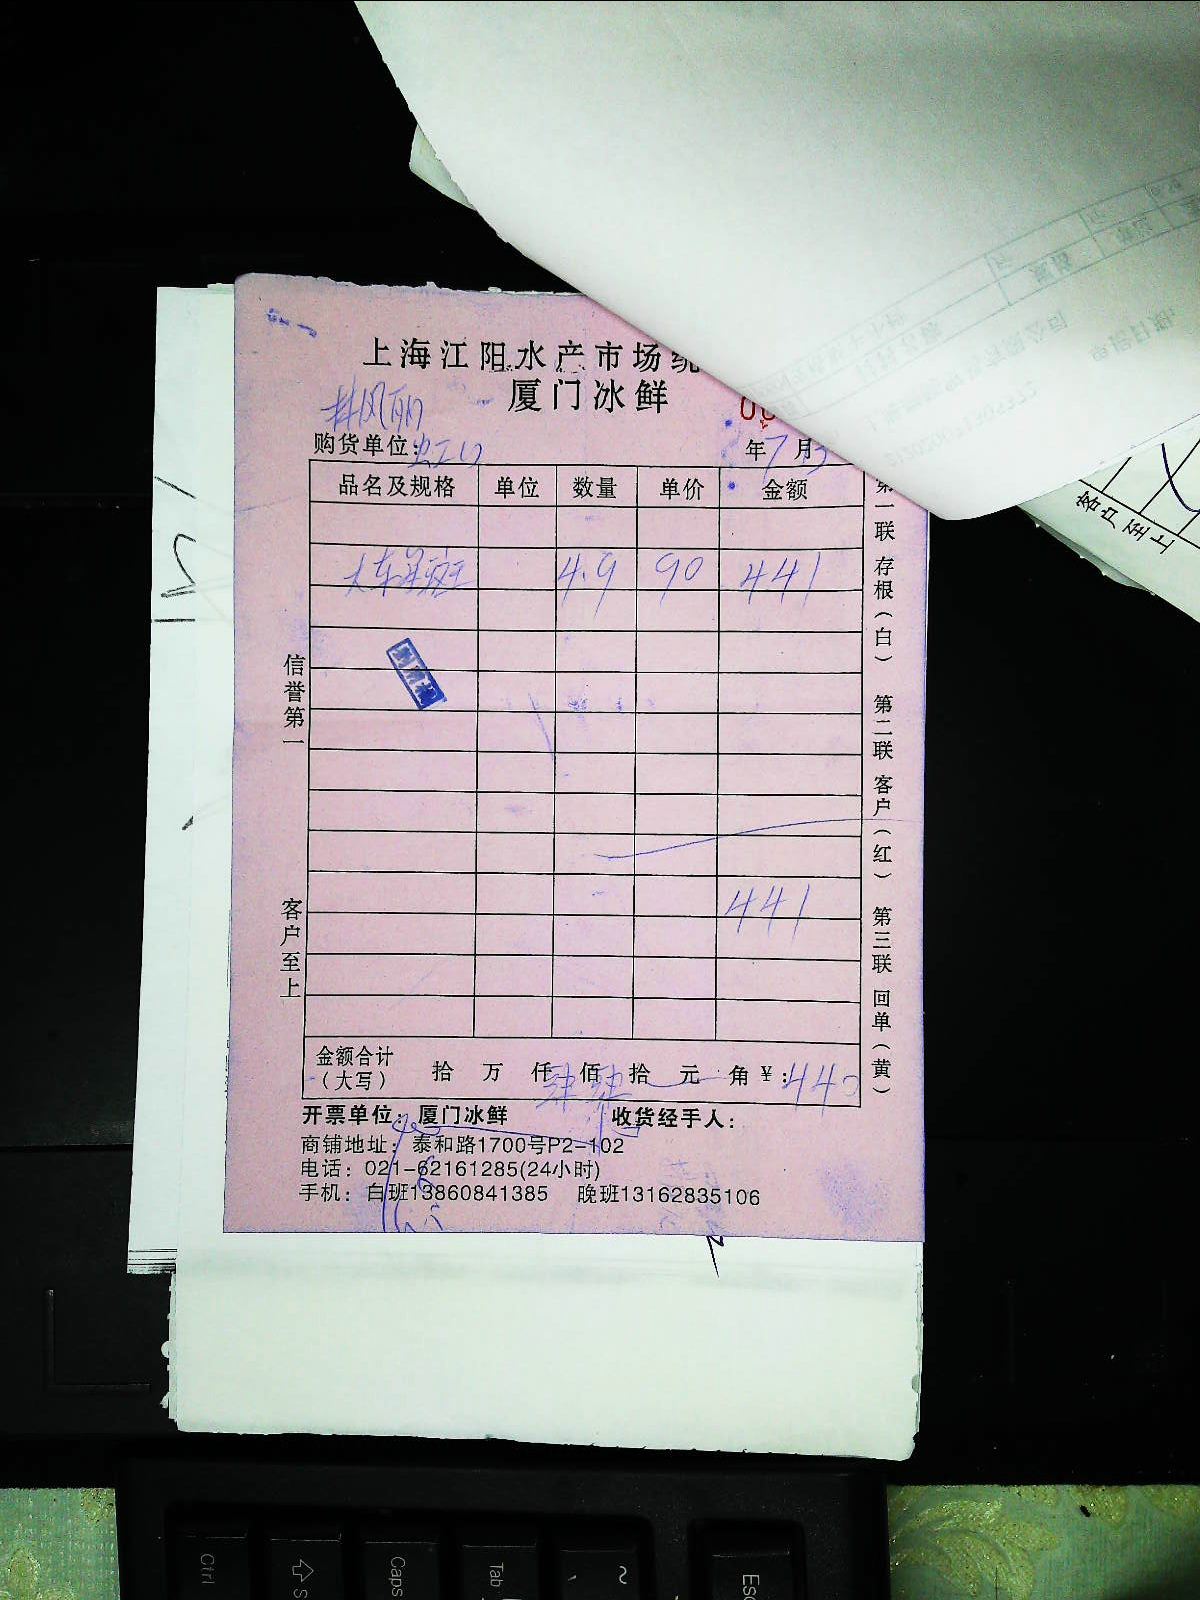 上海江阳水产市场统
厦门冰鲜
购货单位:虹口
年7月3
品名及规格 单位 数量 单价 金额
大东星斑 4.9 90 441
441
金额合计
(大写)
拾 万 仟 肆佰 肆拾 元 角 ¥:440
开票单位:厦门冰鲜 收货经手人:
商铺地址:泰和路1700号P2-102
电话:021-62161285(24小时)
手机:白班13860841385 晚班13162835106
信誉第一
客户至上
第一联 存根(白) 第二联 客户(红) 第三联 回单(黄)
客户至上
Ctrl
Caps
Tab
~
Esc